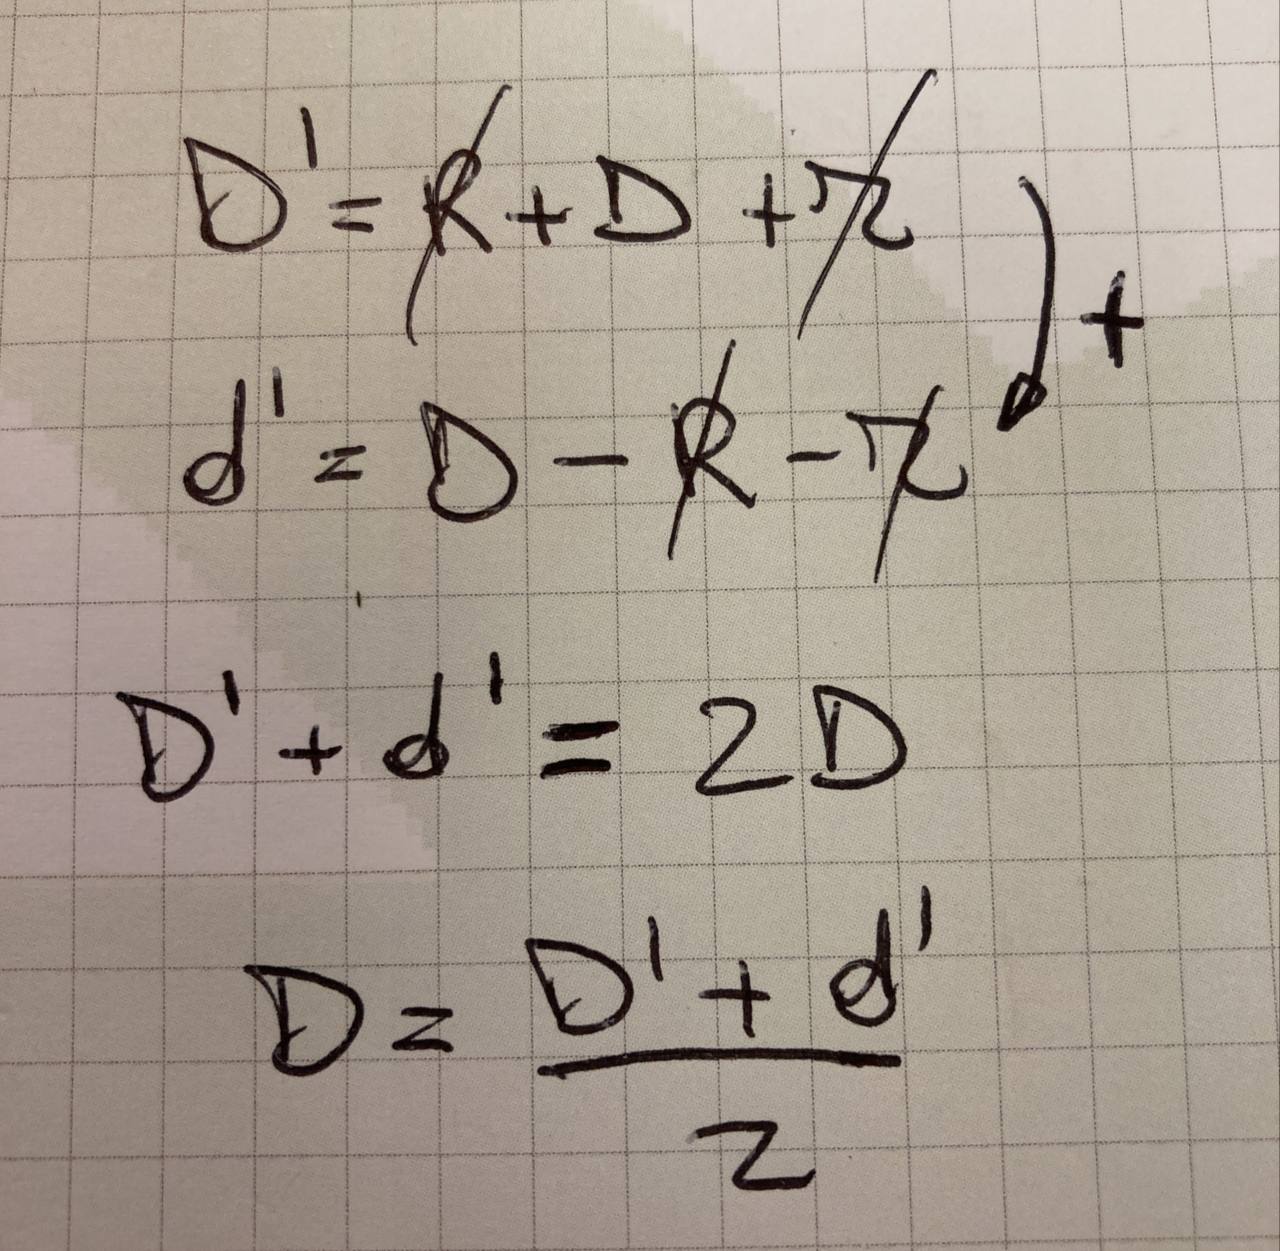 D' = R + D + r
+
d' = D - R - r
D' + d' = 2D
D = D' + d'
2